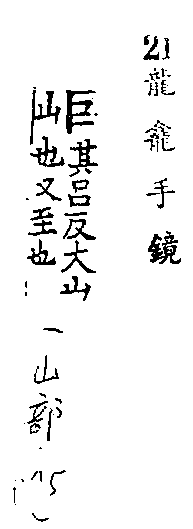 21龍龕手鏡
巨其呂反大山
山也又至也
(山部.75)